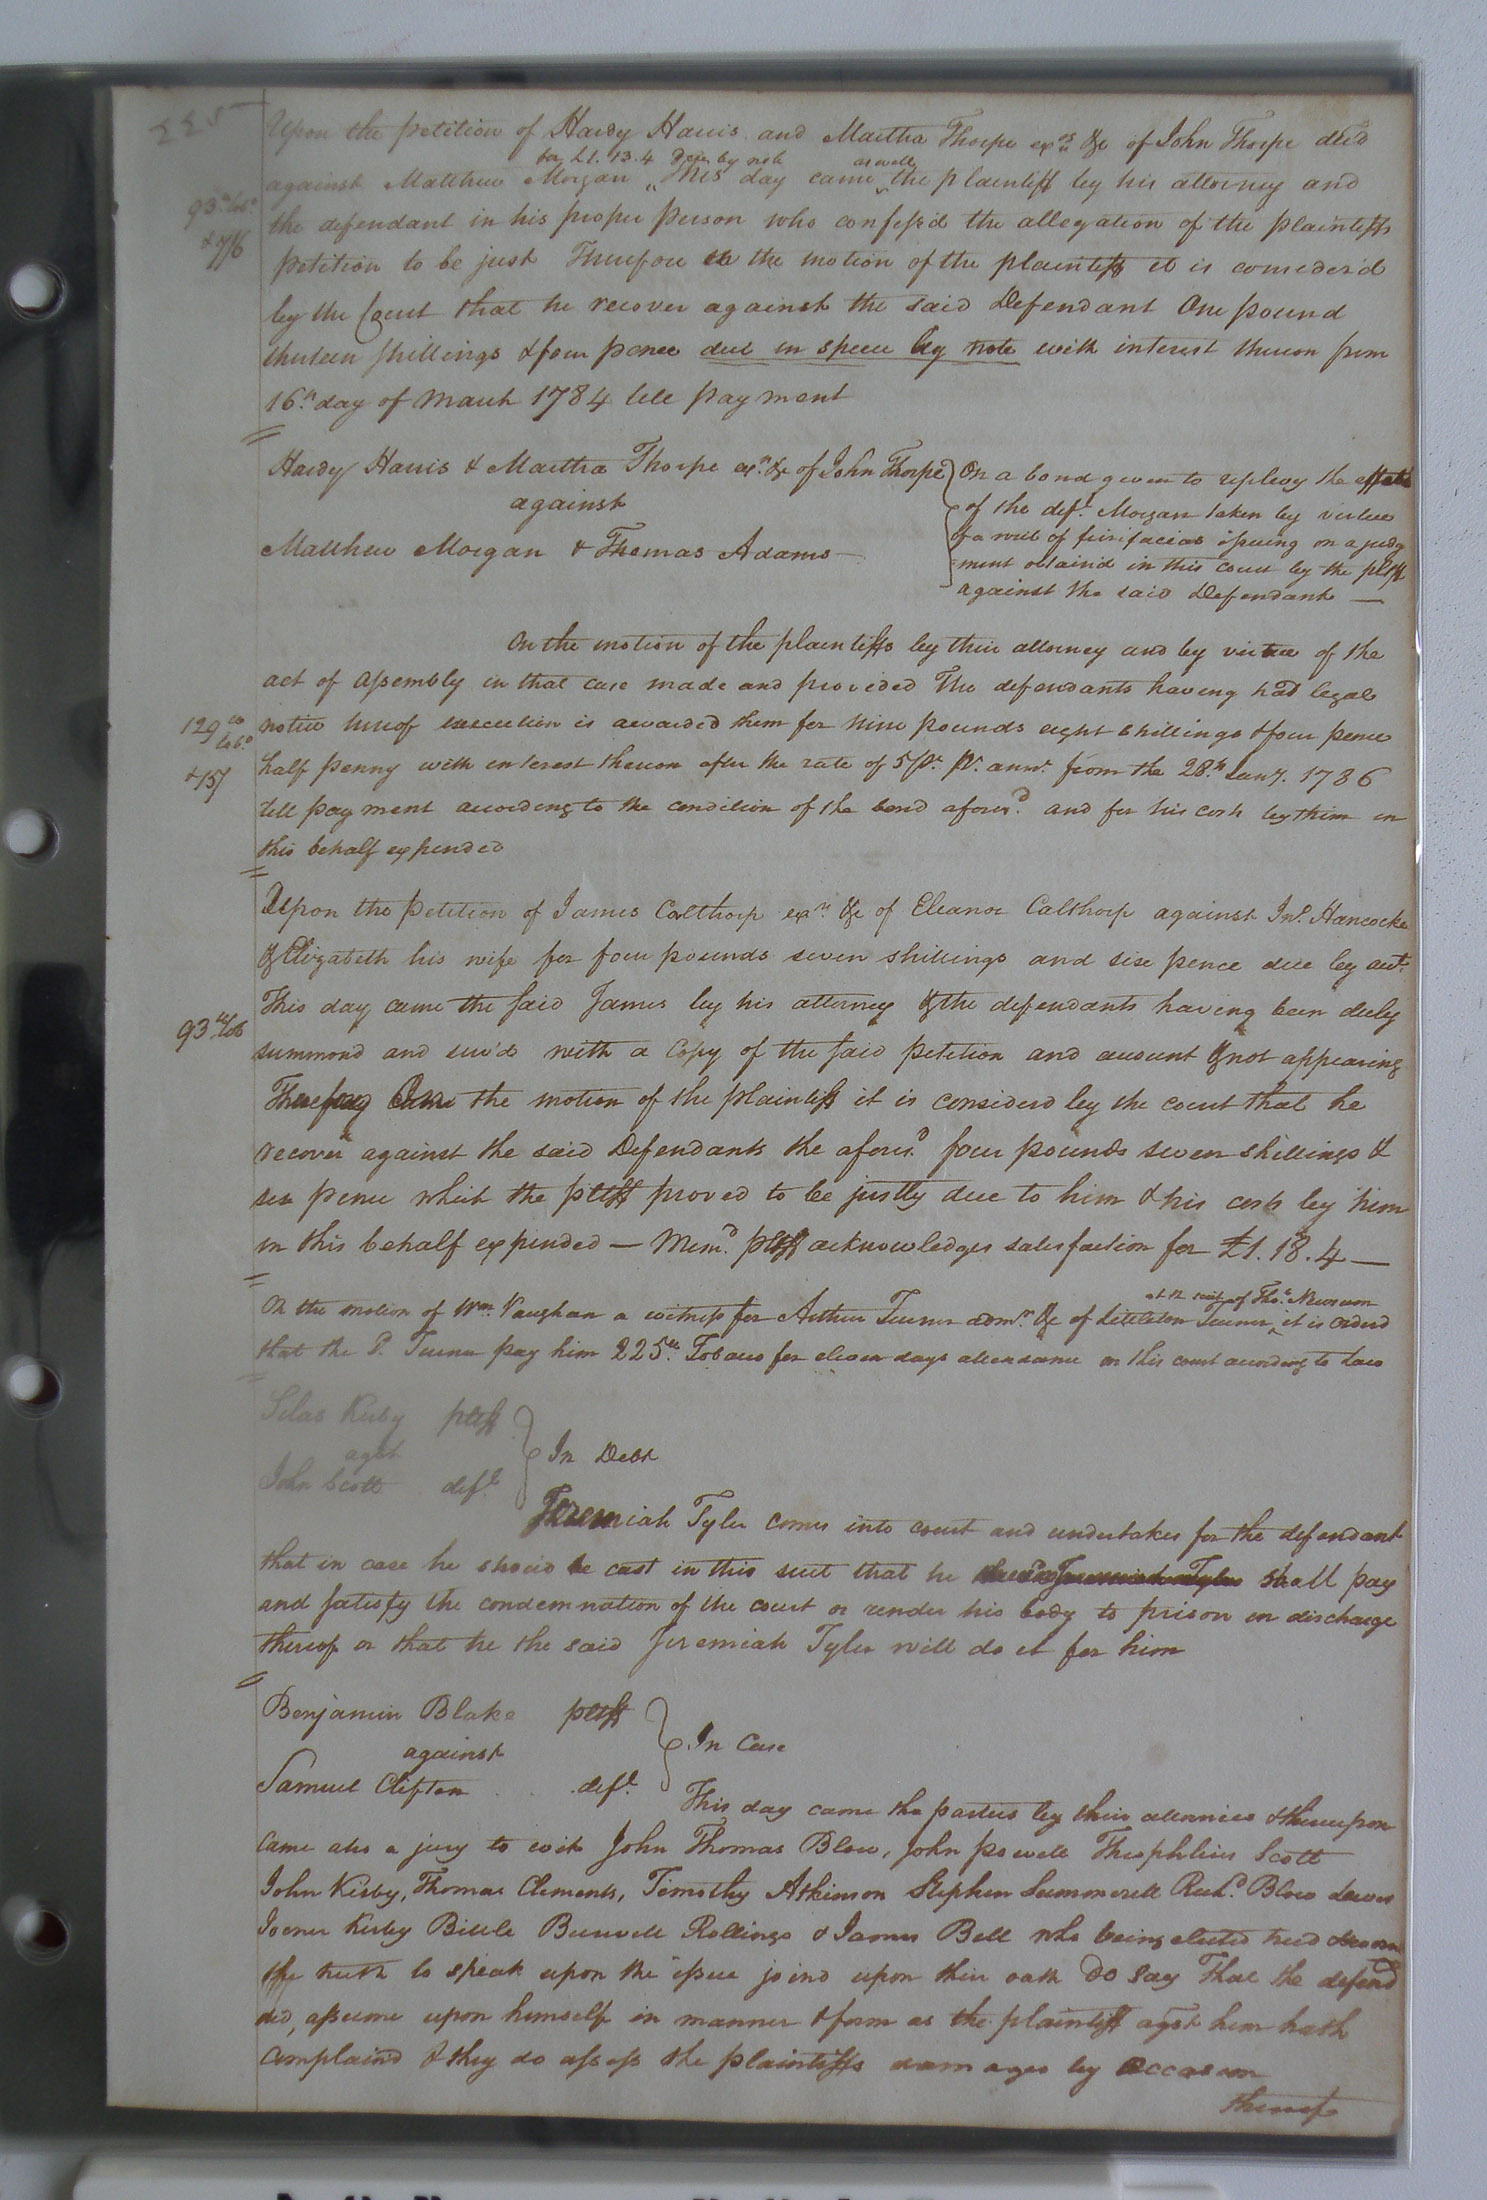 225
Upon the petition of Hardy Harris and Martha Thorpe exrs &c of John Thorpe decd
for £1.13.4 Specie by note as well
against Matthew Morgan This day came the plaintiff by his attorney and
93lb tobo
& 7/6
the defendant in his proper person who confess'd the allegation of the plaintiffs
petition to be just Therefore on the motion of the plaintiff it is consider'd
by the Court that he recover against the said Defendant One pound
thirteen shillings & four pence due in specie by note with interest thereon from
16th day of March 1784 till payment
Hardy Harris & Martha Thorpe exrs &c of John Thorpe
against
Matthew Morgan & Thomas Adams
On a bond given to replevy the effects
of the deft Morgan taken by virtue
of a writ of fieri facias issuing on a judg
ment obtain'd in this court by the pltff
against the said Defendant
On the motion of the plaintiffs by their attorney and by virtue of the
act of assembly in that case made and provided The defendants having had legal
129lb
tobo
& 15/
notice hereof execution is awarded them for nine pounds eight shillings & four pence
half penny with interest thereon after the rate of 5 Pr. Pr. annm. from the 28th Jany. 1786
till payment according to the condition of the bond aforesd. and for his costs by them in
this behalf expended
Upon the petition of James Calthorp exr. &c of Eleanor Calthorp against Jno. Hancocke
& Elizabeth his wife for four pounds seven shillings and six pence due by act.
This day came the said James by his attorney & the defendants having been duly
93lb tob
summond and serv'd with a Copy of the said petition and account & not appearing
Therefore On the motion of the plaintiff it is considerd by the court that he
recover against the said Defendants the aforesd. four pounds seven shillings &
six pence which the pltff proved to be justly due to him & his costs by him
in this behalf expended — Memd. pltff acknowledges satisfaction for £1.18.4 —
at the suit of Thos. Newsum
On the motion of Wm. Vaughan a witness for Arthur Turner admr. &c of Littleton Turner it is orderd
that the sd. Turner pay him 225lb Tobacco for eleven days attendance on this court according to Law
Silas Kirby pltff
agst
John Scott deft.
In Debt
Jeremiah Tyler comes into court and undertakes for the defendant
that in case he should be cast in this suit that he the said Jeremiah Tyler shall pay
and satisfy the condemnation of the court or render his body to prison in discharge
thereof or that he the said Jeremiah Tyler will do it for him
Benjamin Blake pltff
against
Samuel Clifton deft.
In Case
This day came the parties by their attornies & thereupon
came also a jury to wit John Thomas Blow, John powell Theophilus Scott
John Kirby, Thomas Clements, Timothy Atkinson Stephen Summerell Richd. Blow Lewis
Joener Kirby Bittle Burwell Rollings & James Bell who being elected tried & sworn
the truth to speak upon the issue joind upon their oath Do say That the defend
did, assume upon himself in manner & form as the plaintiff agst him hath
Complaind & they do assess the plaintiffs damages by occasion
thereof